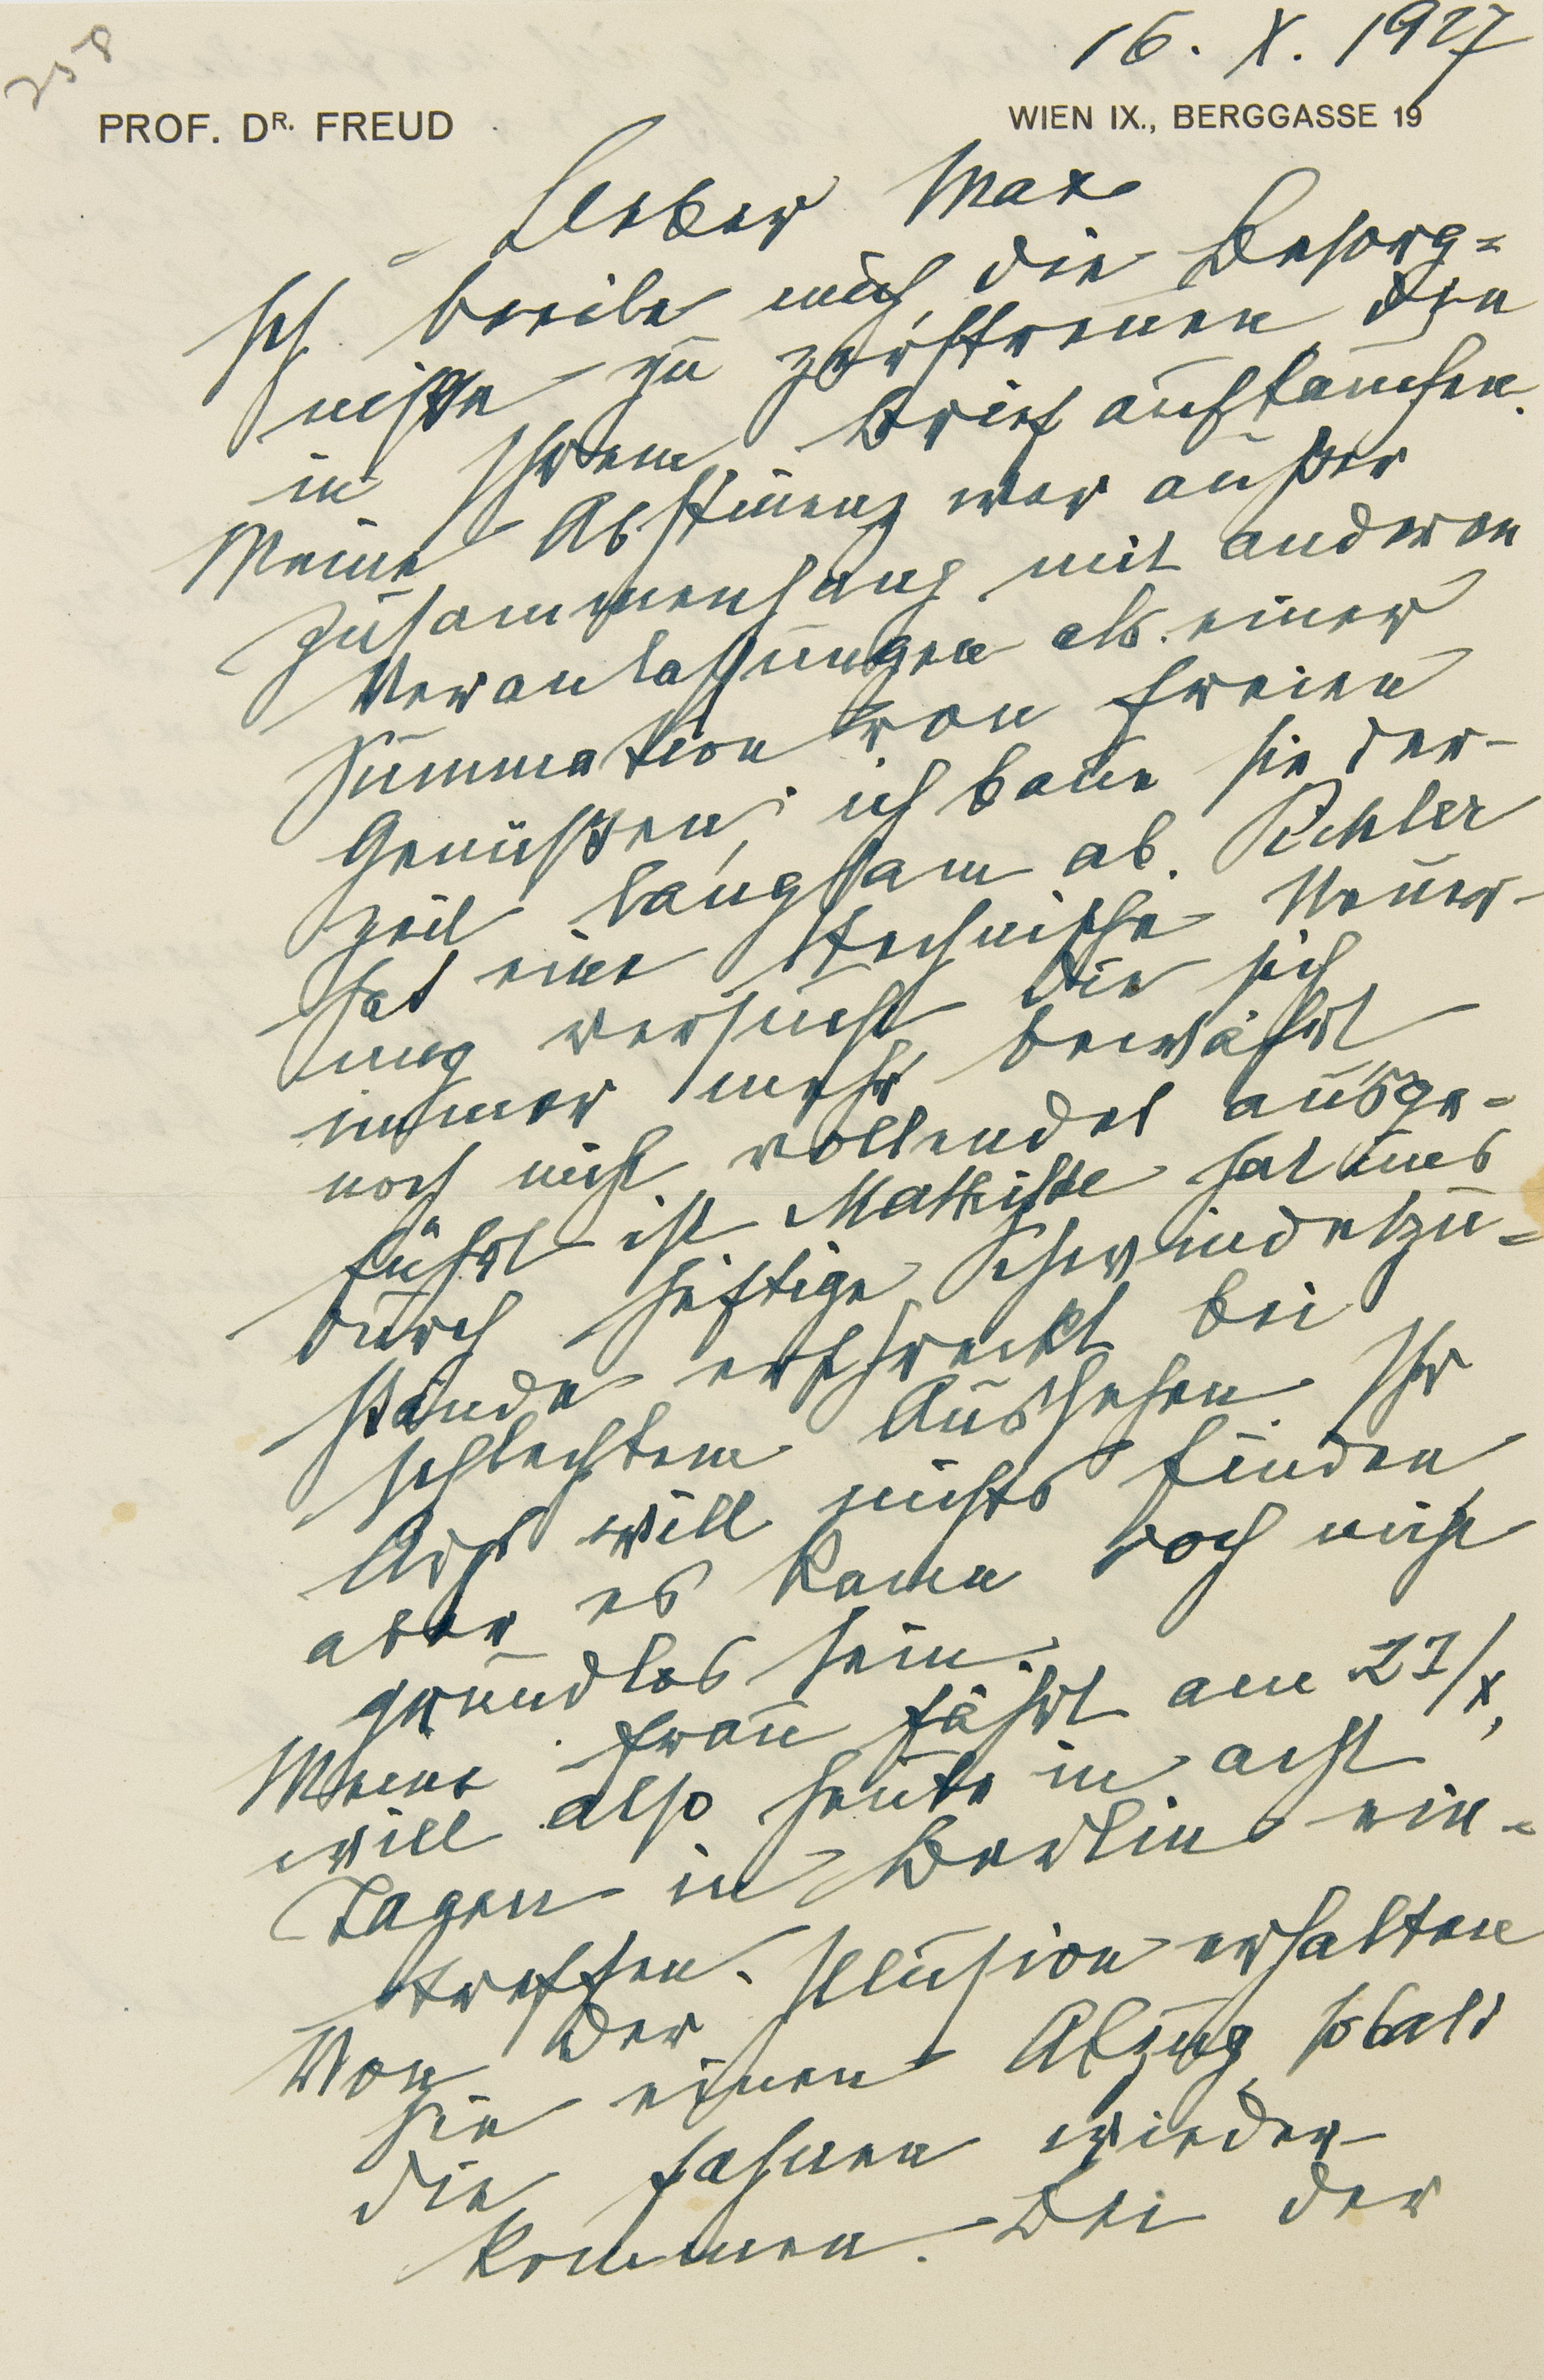 258
16. X. 1927
PROF. DR. FREUD
WIEN IX., BERGGASSE 19
Lieber Max
Ich beeile mich, die Besorg-
nisse zu zerstreuen, die
in Ihrem Brief auftauchen.
Meine Abstinenz war außer
Zusammenhang mit anderen
Veranlassungen als einer
Summation von freien
Genüssen; ich baue sie der-
zeit langsam ab. Pichler
hat eine technische Neuer-
ung versucht, die sich
immer mehr bewährt
noch nicht vollendet ausge-
führt ist. Mathilde hat uns
durch heftige Schwindelzu-
stände erschreckt bei
schlechtem Aussehen. Ihr
Arzt will nichts finden,
aber es kann doch nicht
grundlos sein.
Meine Frau fährt am 23/X,
will also heute in acht
Tagen in Berlin ein-
treffen.
Von der Illusion erhalten
Sie einen Abzug, sobald
die Fahnen wieder-
kommen. Bei der